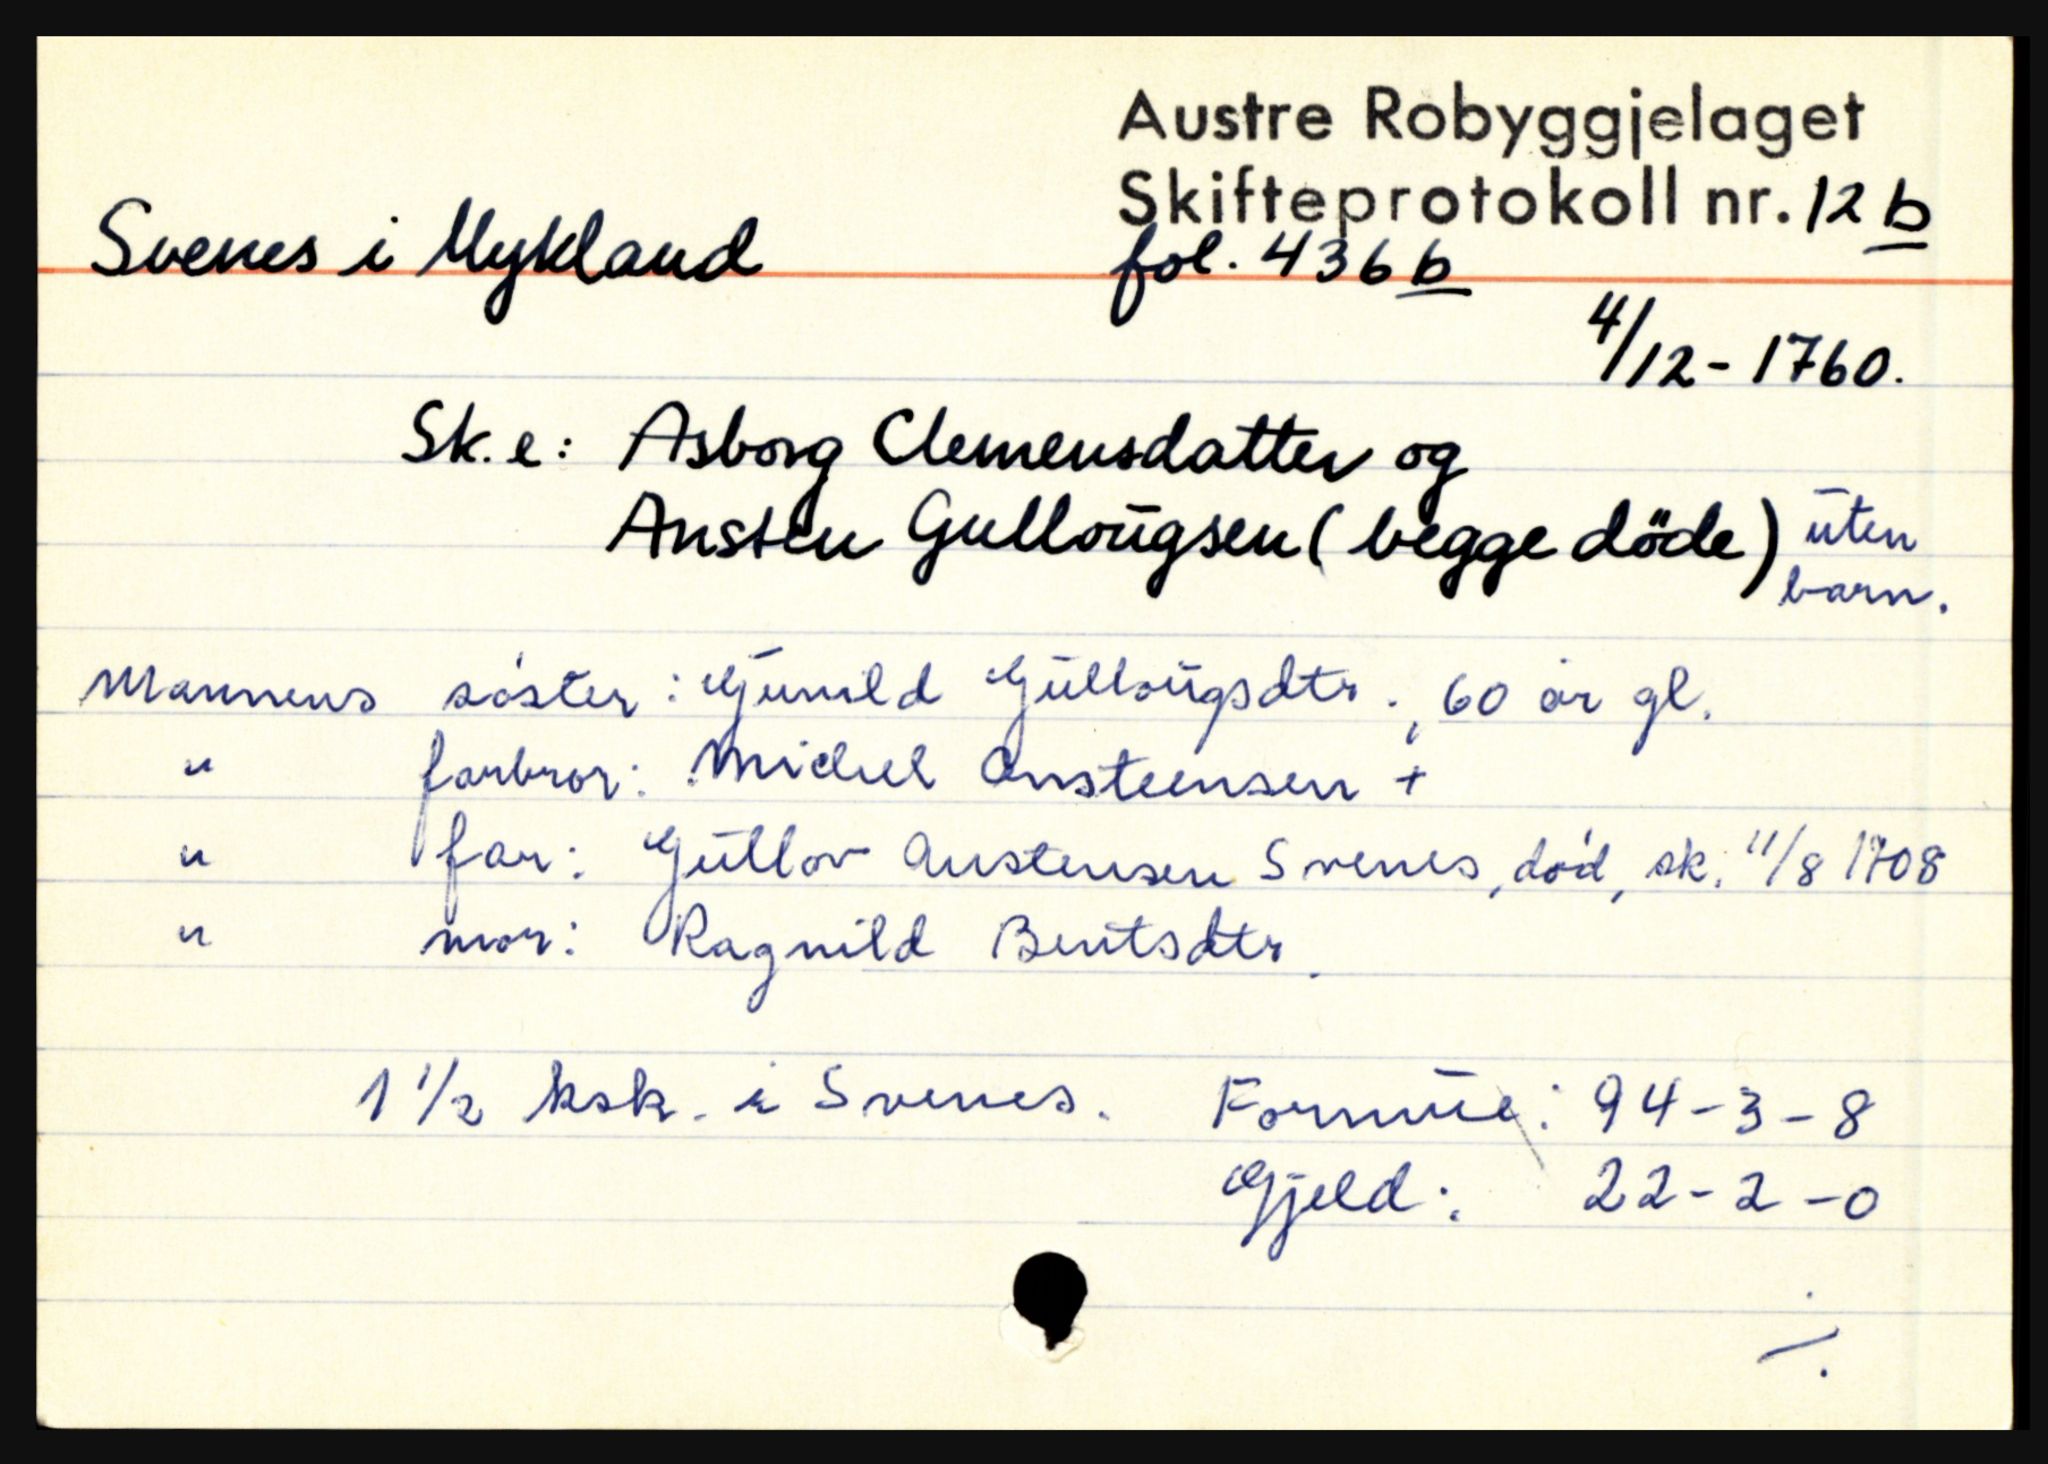 Austre Robyggjelaget
Skifteprotokoll nr. 12 b
Svenes i Mykland fol. 436 b
4/12 - 1760.
Sk. e: Asborg Clemensdatter og
Ansten Gulloügsen ( begge döde ) üten
barn.
Mannens söster : Günild Gülloügsdtr., 60 år gl.
" farbror: Michel Ansteensen +
" far: Güllov Anstensen Svenes, död, sk. 11/8 1708
" mor: Ragnild Bentsdtr.
1 1/2 ksk. i Svenes. Formüe: 94 - 3 - 8
Gjeld: 22 - 2 - 0